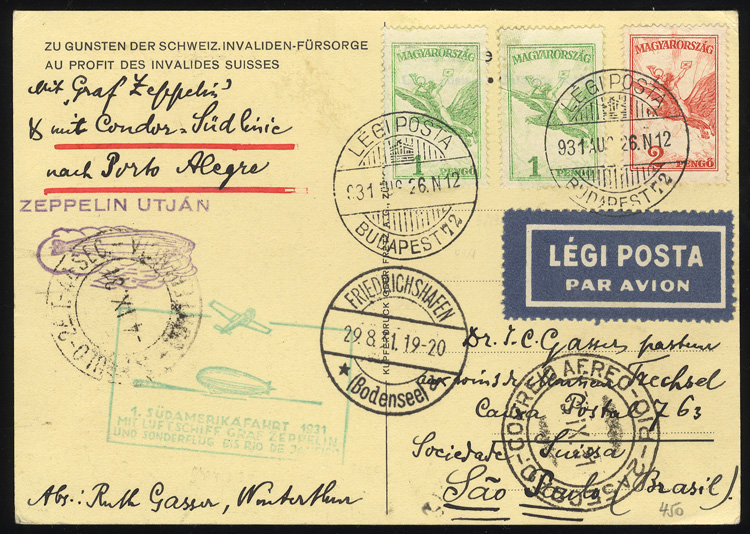 ZU GUNSTEN DER SCHWEIZ. INVALIDEN-FÜRSORGE
AU PROFIT DES INVALIDES SUISSES
Mit "Graf Zeppelin"
& mit Condor=Südlinie
nach Porto Alegre
ZEPPELIN UTJÁN
MAGYARORSZÁG
1
PENGŐ
MAGYARORSZÁG
1
PENGŐ
MAGYARORSZÁG
2
PENGŐ
LÉGI POSTA
931 AUG 26. N12
BUDAPEST 72
LÉGI POSTA
931 AUG 26. N12
BUDAPEST 72
LÉGI POSTA
PAR AVION
FRIEDRICHSHAFEN
29.8.31. 19-20
(Bodensee)
1. SÜDAMERIKAFAHRT 1931
MIT LUFTSCHIFF GRAF ZEPPELIN
UND SONDERFLUG BIS RIO DE JANEIRO
KUPFERDRUCK
Dr. J. C. Gasser, pasteur
Trechsel
Caixa Postal 763
Sociedade Suissa
São Paulo (Brasil).
CORREIO AEREO
Abs.: Ruth Gasser, Winterthur
450